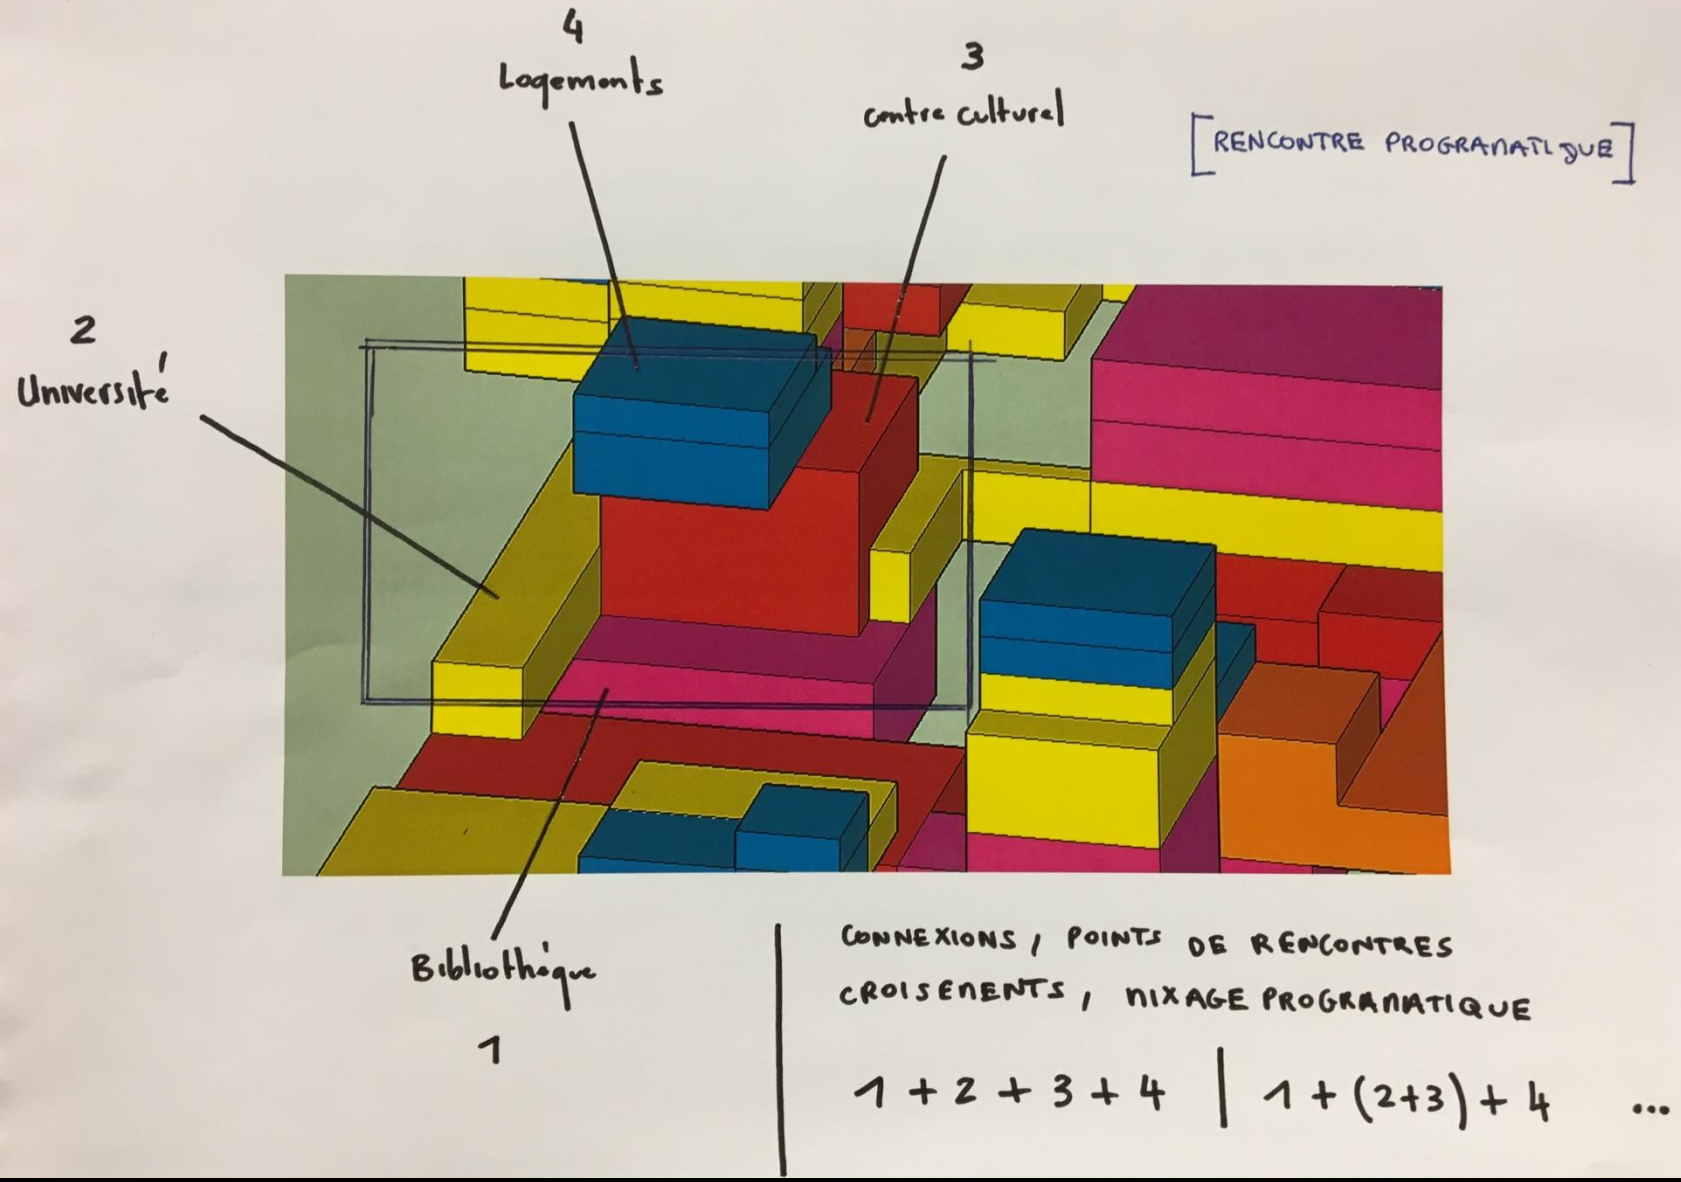 4
Logements
3
centre culturel
[RENCONTRE PROGRAMATIQUE]
2
Université
Bibliothéque
1
CONNEXIONS, POINTS DE RENCONTRES
CROISEMENTS, MIXAGE PROGRAMATIQUE
1 + 2 + 3 + 4 | 1 + (2+3) + 4 ...